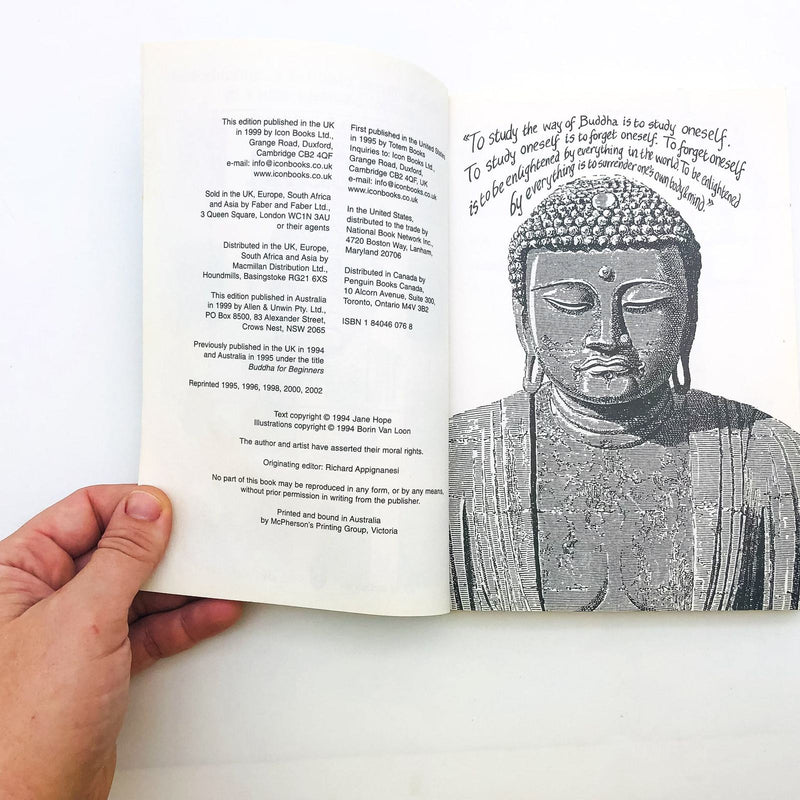 This edition published in the UK
in 1999 by Icon Books Ltd.,
Grange Road, Duxford,
Cambridge CB2 4QF
e-mail: info@iconbooks.co.uk
www.iconbooks.co.uk
Sold in the UK, Europe, South Africa
and Asia by Faber and Faber Ltd.,
3 Queen Square, London WC1N 3AU
or their agents
Distributed in the UK, Europe,
South Africa and Asia by
Macmillan Distribution Ltd.,
Houndmills, Basingstoke RG21 6XS
This edition published in Australia
in 1999 by Allen & Unwin Pty. Ltd.,
PO Box 8500, 83 Alexander Street,
Crows Nest, NSW 2065
Previously published in the UK in 1994
and Australia in 1995 under the title
Buddha for Beginners
Reprinted 1995, 1996, 1998, 2000, 2002
First published in the United States
in 1995 by Totem Books
Inquiries to: Icon Books Ltd.,
Grange Road, Duxford,
Cambridge CB2 4QF, UK
e-mail: info@iconbooks.co.uk
www.iconbooks.co.uk
In the United States,
distributed to the trade by
National Book Network Inc.,
4720 Boston Way, Lanham,
Maryland 20706
Distributed in Canada by
Penguin Books Canada,
10 Alcorn Avenue, Suite 300,
Toronto, Ontario M4V 3B2
ISBN 1 84046 076 8
Text copyright © 1994 Jane Hope
Illustrations copyright © 1994 Borin Van Loon
The author and artist have asserted their moral rights.
Originating editor: Richard Appignanesi
No part of this book may be reproduced in any form, or by any means,
without prior permission in writing from the publisher.
Printed and bound in Australia
by McPherson's Printing Group, Victoria
«To study the way of Buddha is to study oneself.
To study oneself is to forget oneself. To forget oneself
is to be enlightened by everything in the world. To be enlightened
by everything is to surrender one's own body & mind.»